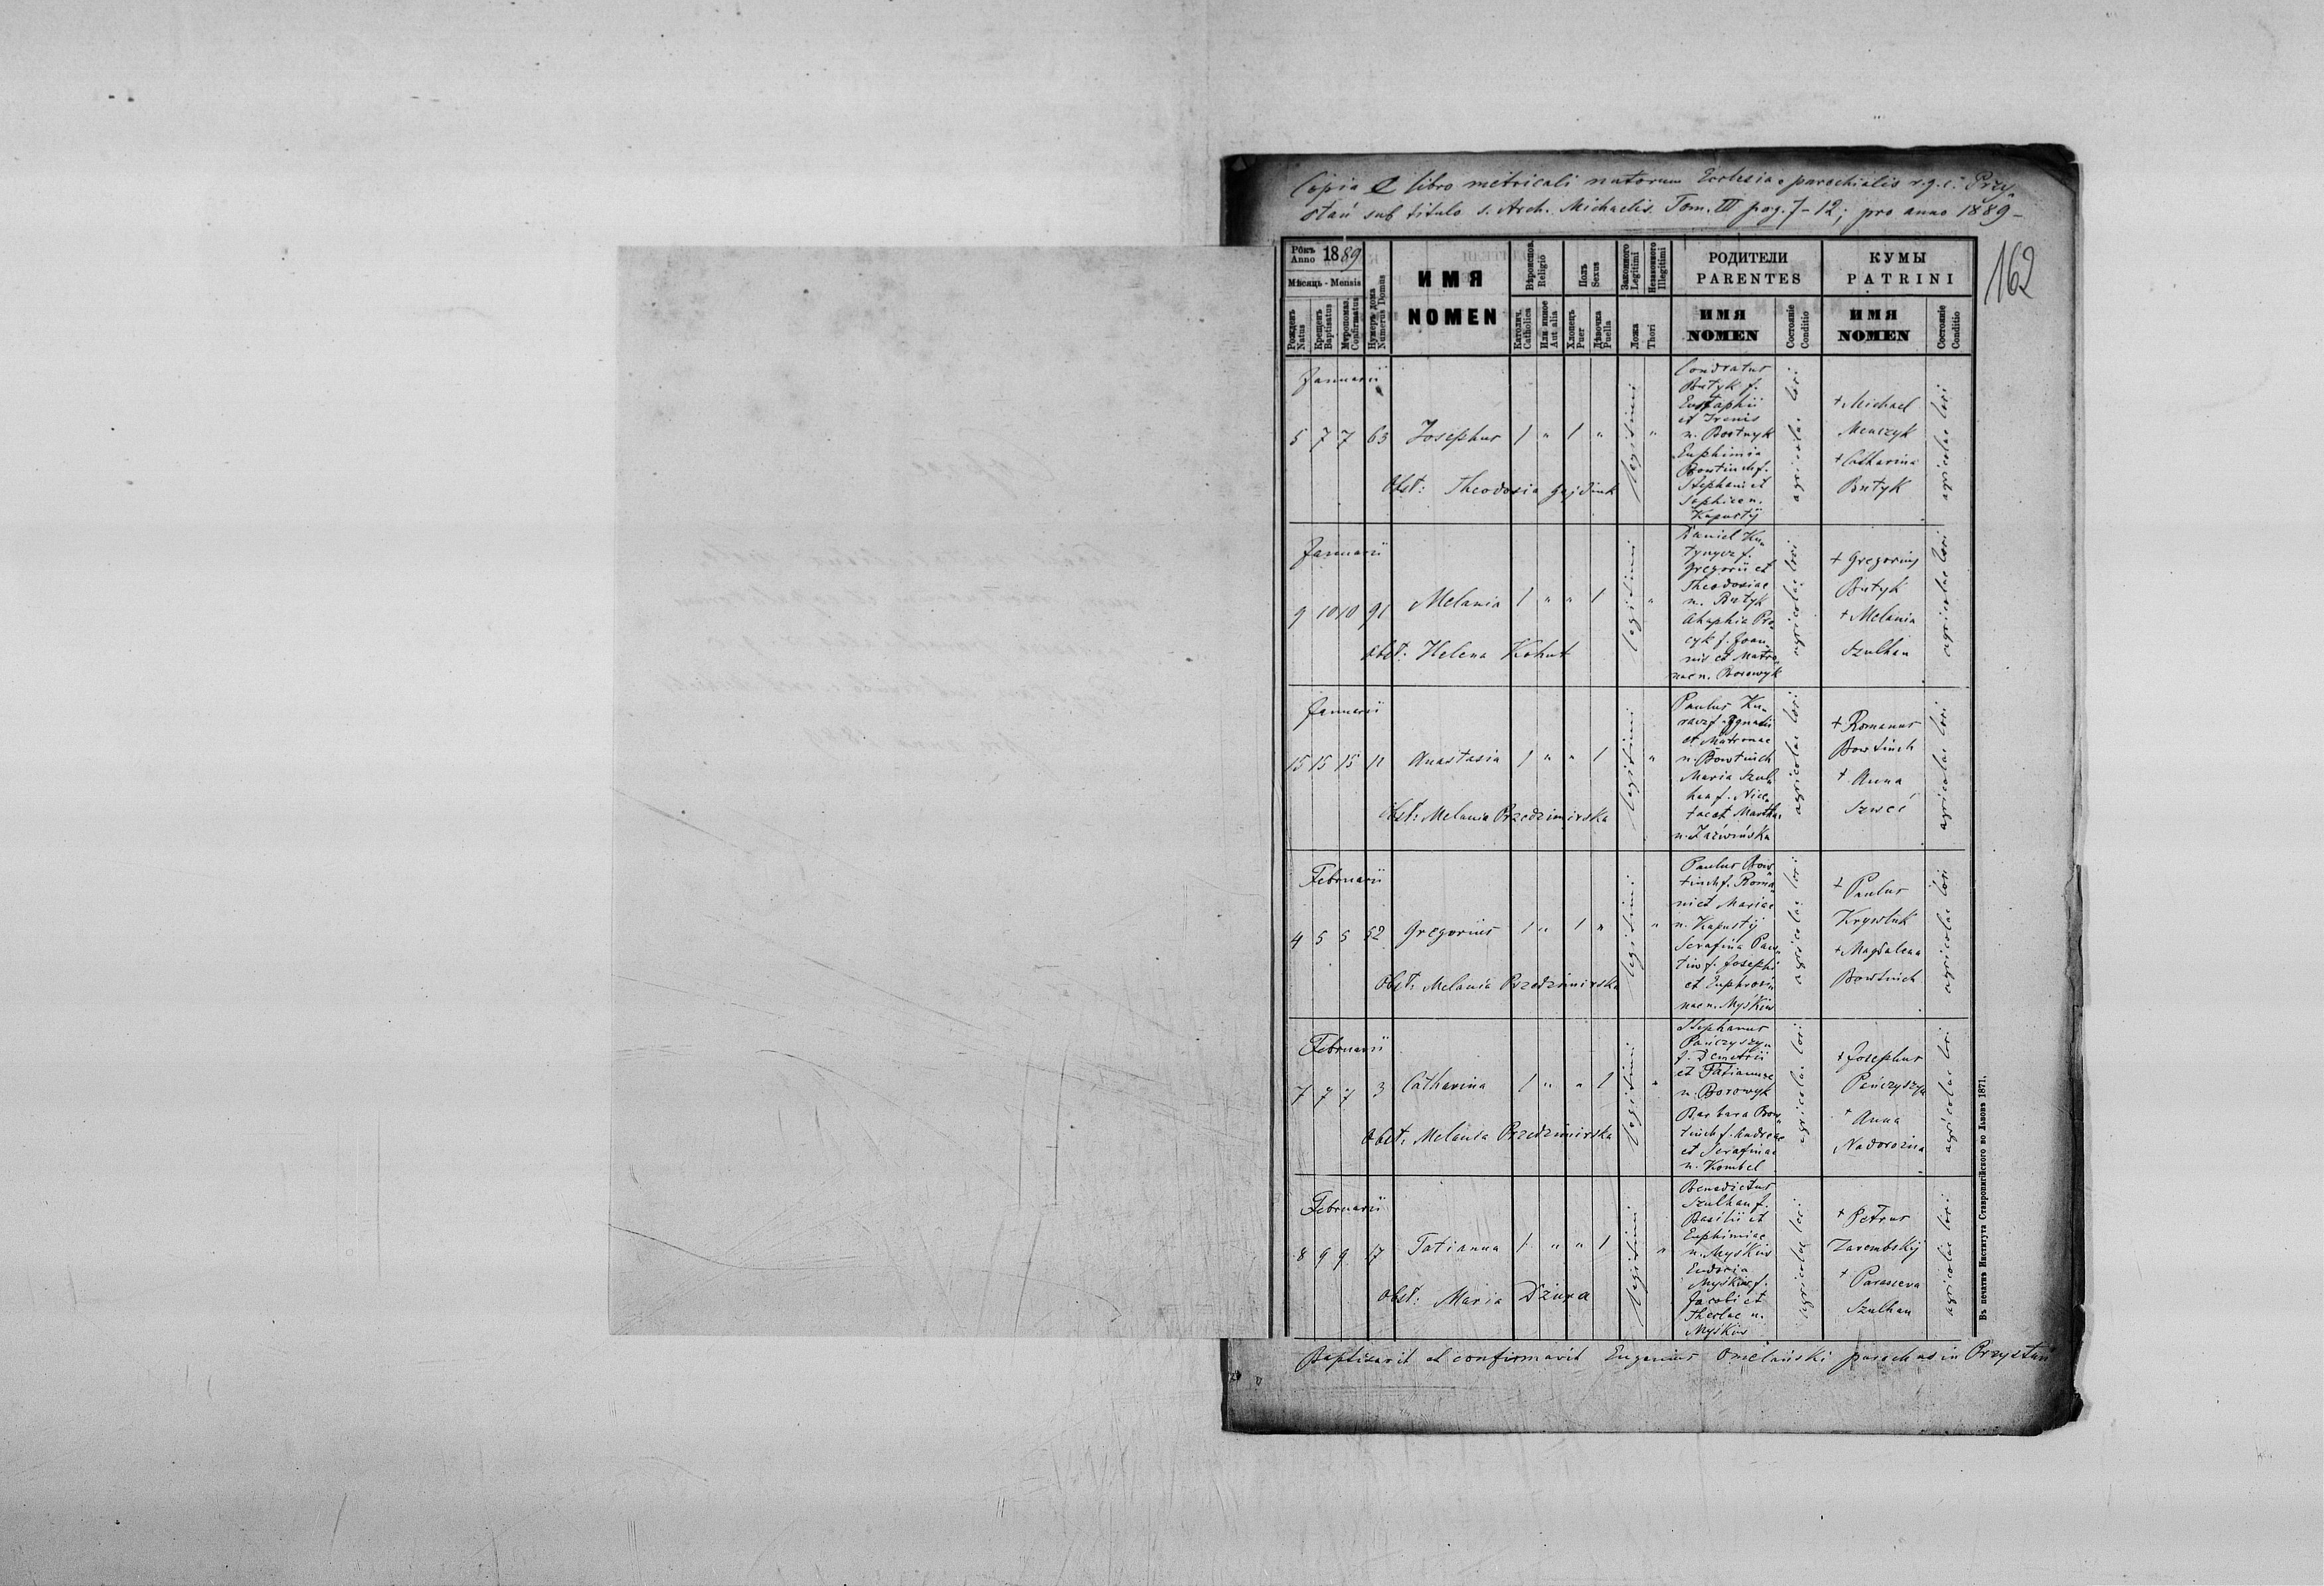 Copia e libro metricali natorum Ecclesiae parochialis r.g.c. Przy-
stań sub titulo s. Arch. Michaelis. Tom. III pag. 7-12; pro anno 1889 -
162
Рôкъ Anno 1889
Мѣсяць - Mensis
Рожденъ Natus
Крещенъ Baptisatus
Мѵропомаз. Confirmatus
Нумеръ дома Numerus Domus
ИМЯ
NOMEN
Вѣроиспов. Religio
Католич. Catholica
Или иное Aut alia
Полъ Sexus
Хлопецъ Puer
Дѣвочка Puella
Законного Legitimi
Незаконного Illegitimi
Ложа Thori
РОДИТЕЛИ
PARENTES
ИМЯ
NOMEN
Состоянiе Conditio
КУМЫ
PATRINI
ИМЯ
NOMEN
Состоянiе Conditio
Januarii
5 7 7 63 Josephus 1 " 1 " legitimi "
Obst: Theodosia
Condratus
Butyk f.
Eustaphii
et Irenis
n. Bortnyk
Euphimia
Bowtinch f.
Stephani et
Sophiae n.
Kapustij
agricolae loci
+ Michael
Menczyk
+ Catharina
Butyk
agricolae loci
Januarii
9 10 10 91 Melania 1 " " 1 legitimi "
obst: Helena Kohut
Daniel
f.
Gregorii et
Theodosiae
n. Butyk
Ahaphia Pro-
cyk f. Joan-
nis et Matro-
nae n. Borowyk
agricolae loci
+ Gregorius
Butyk
+ Melania
Szulhan
agricolae loci
Januarii
15 15 15 11 Anastasia 1 " " 1 legitimi "
Obst: Melania Przedzimirska
Paulus Ku-
rasz f. Ignatii
et Matronae
n. Bowtinch
Maria Szul-
han f. Nice-
tae et Marthae
n.
agricolae loci
+ Romanus
Bowtinch
+ Anna
Szweć
agricolae loci
Februarii
4 5 5 52 Gregorius 1 " 1 " legitimi "
Obst: Melania Przedzimirska
Paulus Bow-
tinch f. Roma-
ni et Mariae
n. Kapustij
Serafina
f. Josephi
et Euphrosi-
nae n. Myśkiw
agricolae loci
+ Paulus
+ Magdalena
Bowtinch
agricolae loci
Februarii
7 7 7 3 Catharina 1 " " 1 legitimi "
Obst: Melania Przedzimirska
Stephanus
Pańczyszyn
f. Demetrii
et Tatiannae
n. Borowyk
Barbara Bow-
tinch f. Andreae
et Serafinae
n. Kombel
agricolae loci
+ Josephus
Pańczyszyn
+ Anna
Nadorożna
agricolae loci
Februarii
8 9 9 17 Tatianna 1 " " 1 legitimi "
Obst: Maria Dziura
Benedictus
Szulhan f.
Basilii et
Euphimiae
n. Myśkiw
Eudoxia
Myśkiw f.
Jacobi et
Theclae n.
Myśkiw
agricolae loci
+ Petrus
Zarembskij
+ Parasceva
Szulhan
agricolae loci
Въ печатнѣ Института Ставропигiйского во Львовѣ 1871.
Baptisavit et confirmavit Eugenius Omelański parochus in Przystań